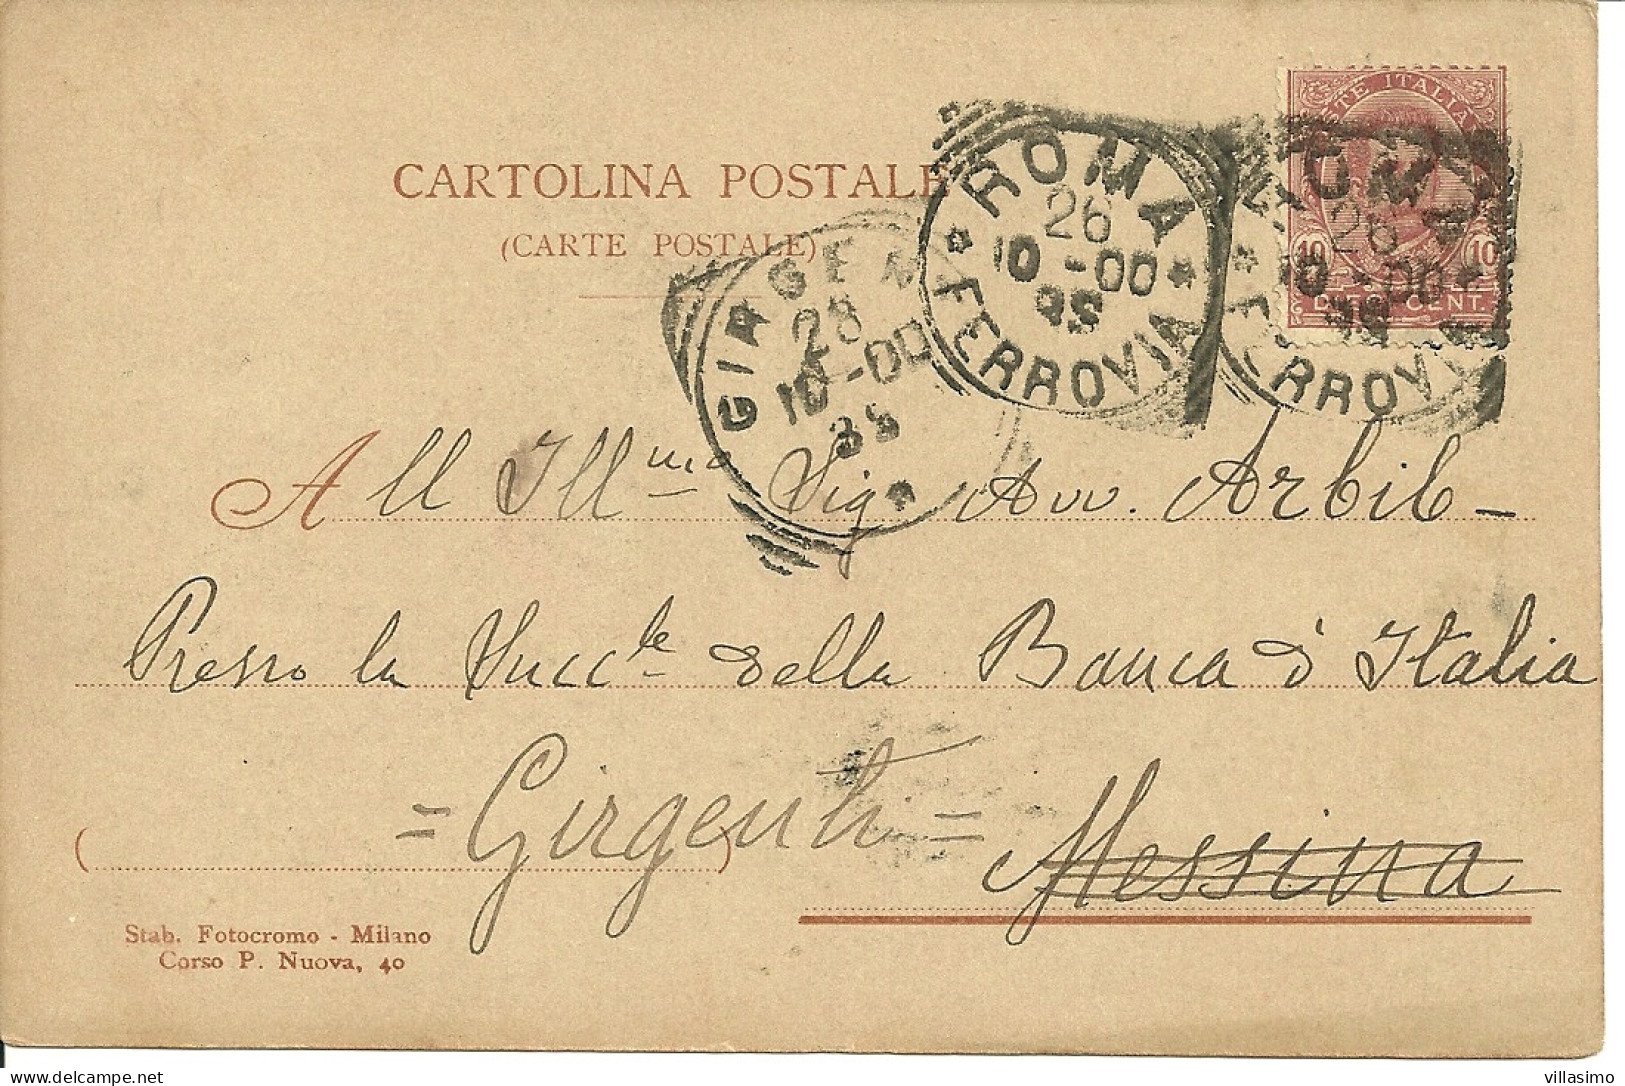 POSTE ITALIANE
CARTOLINA POSTALE
(CARTE POSTALE)
ROMA
26
10-00
98
FERROVIA
ROMA
26
10-00
98
FERROVIA
10 10
DIECI CENT.
GIRGEN
28
10-00
98
All Ill.mo Sig. Avv. Arbib -
Presso la Succ.le della Banca d'Italia
= Girgenti =
Messina
Stab. Fotocromo - Milano
Corso P. Nuova, 40
delcampe.net
villasimo